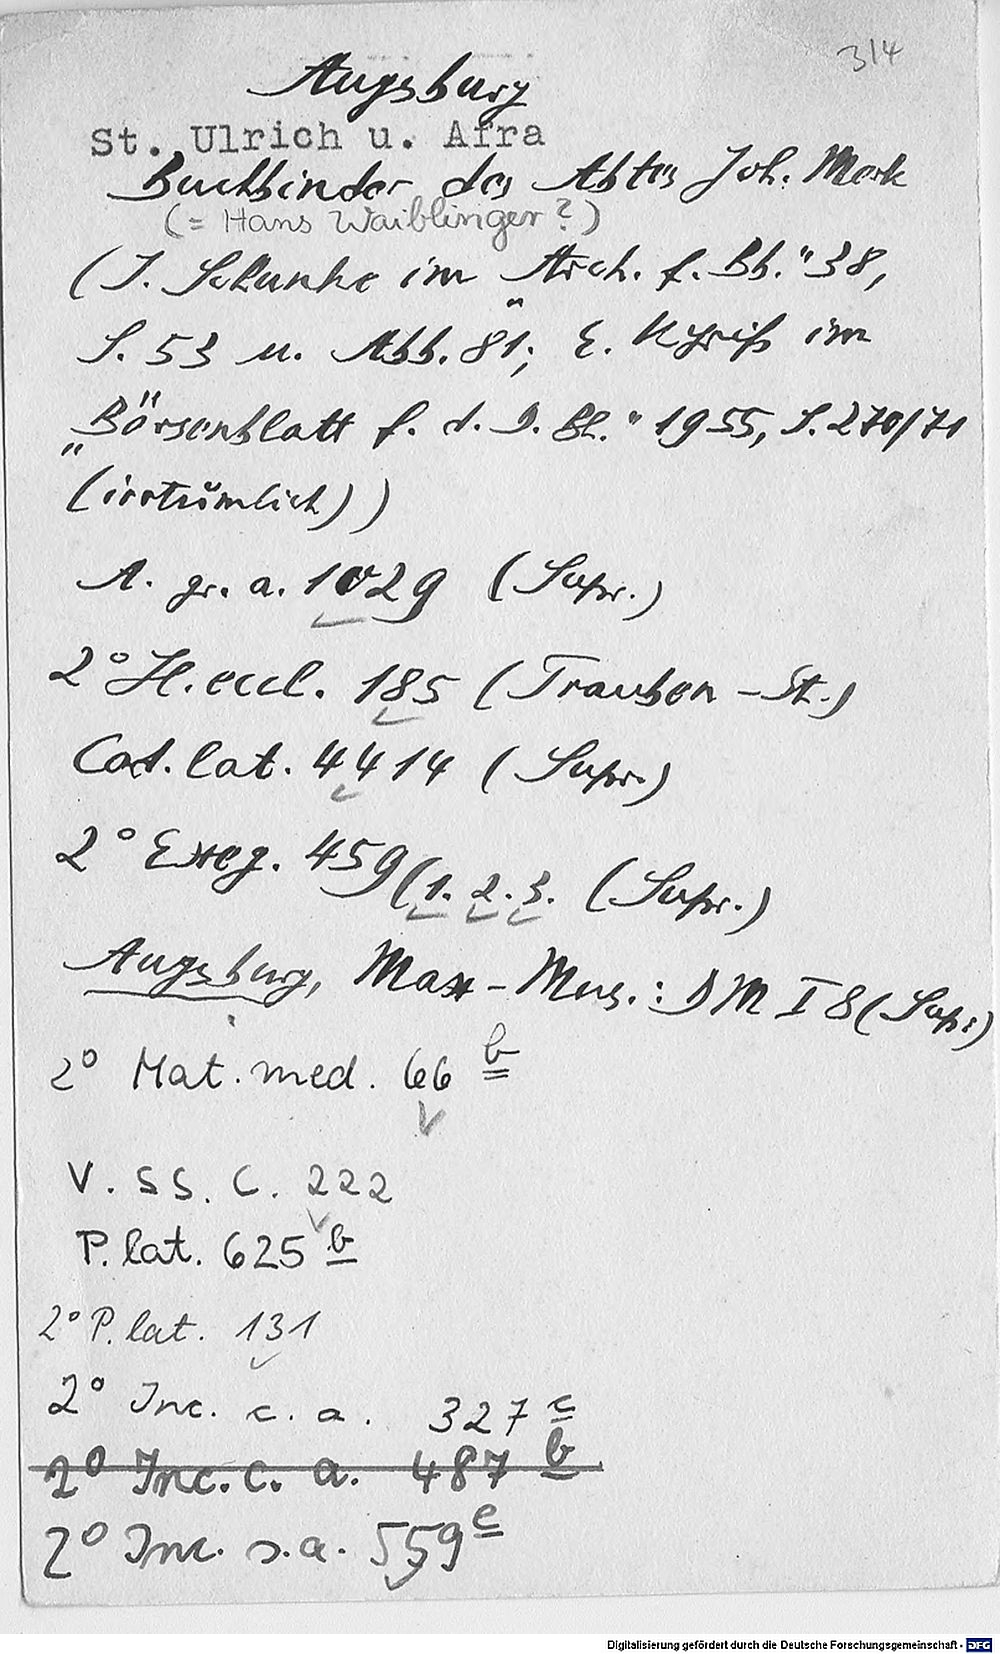 314
Augsburg
St. Ulrich u. Afra
Buchbinder des Abtes Joh. Merk
(= Hans Waiblinger?)
(I. Schunke im "Arch. f. Bb." 38,
S. 53 u. Abb. 81; E. Kyriß im
„Börsenblatt f. d. D. Bh." 1955, S. 270/71
(irrtümlich))
A. gr. a. 1029 (Supr.)
2° H. eccl. 185 (Trauben-St.)
Cod. lat. 4414 (Supr.)
2° Exeg. 459(1. 2. 3. (Supr.)
Augsburg, Max-Mus.: DM I 8 (Supr.)
2° Mat. med. 66 b
V. SS. C. 222
P. lat. 625 b
2° P. lat. 131
2° Inc. c. a. 327 c
2° Inc. c. a. 487 b
2° Inc. s. a. 559 e
Digitalisierung gefördert durch die Deutsche Forschungsgemeinschaft - DFG